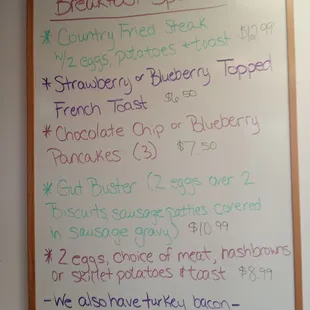 Breakfast Sp
* Country Fried Steak $12.99
w/2 eggs, potatoes + toast
* Strawberry or Blueberry Topped
French Toast $6.50
* Chocolate Chip or Blueberry
Pancakes (3) $7.50
* Gut Buster (2 eggs over 2
Biscuits, sausage patties covered
in sausage gravy) $10.99
* 2 eggs, choice of meat, hashbrowns
or skillet potatoes & toast $8.99
- We also have turkey bacon -